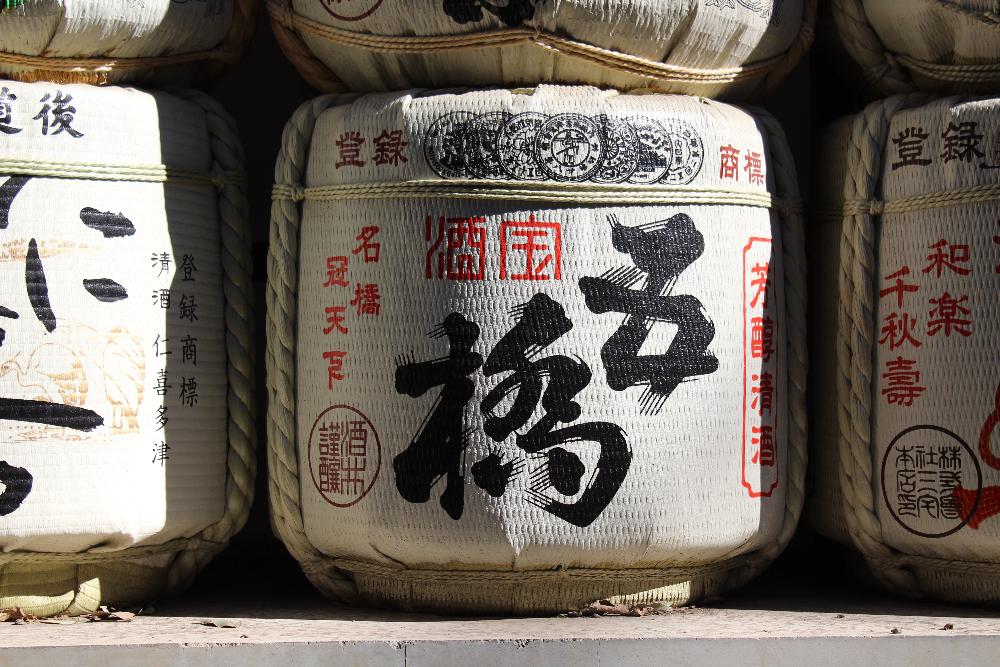 道後
登録商標
清酒 仁喜多津
登録
商標
酒宝
五橋
芳醇清酒
名橋
冠天下
酒井
謹醸
登録
和楽
千秋壽
株式會
社三宅